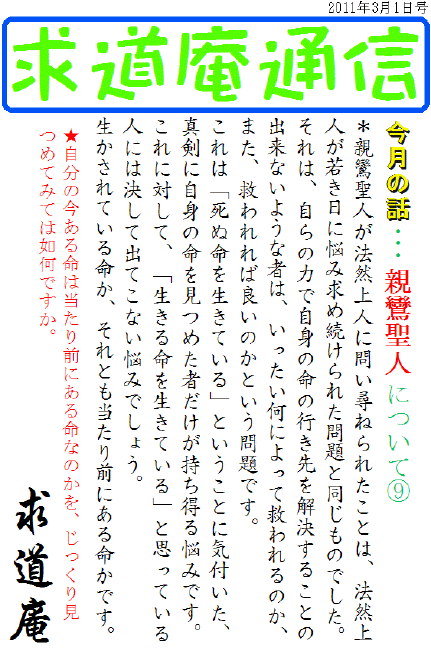 2011年3月1日号
求道庵通信
今月の話…親鸞聖人について⑨
＊親鸞聖人が法然上人に問い尋ねられたことは、法然上
人が若き日に悩み求め続けられた問題と同じものでした。
それは、自らの力で自身の命の行き先を解決することの
出来ないような者は、いったい何によって救われるのか、
また、救われれば良いのかという問題です。
これは「死ぬ命を生きている」ということに気付いた、
真剣に自身の命を見つめた者だけが持ち得る悩みです。
これに対して、「生きる命を生きている」と思っている
人には決して出てこない悩みでしょう。
生かされている命か、それとも当たり前にある命かです。
★自分の今ある命は当たり前にある命なのかを、じっくり見
つめてみては如何ですか。
求道庵